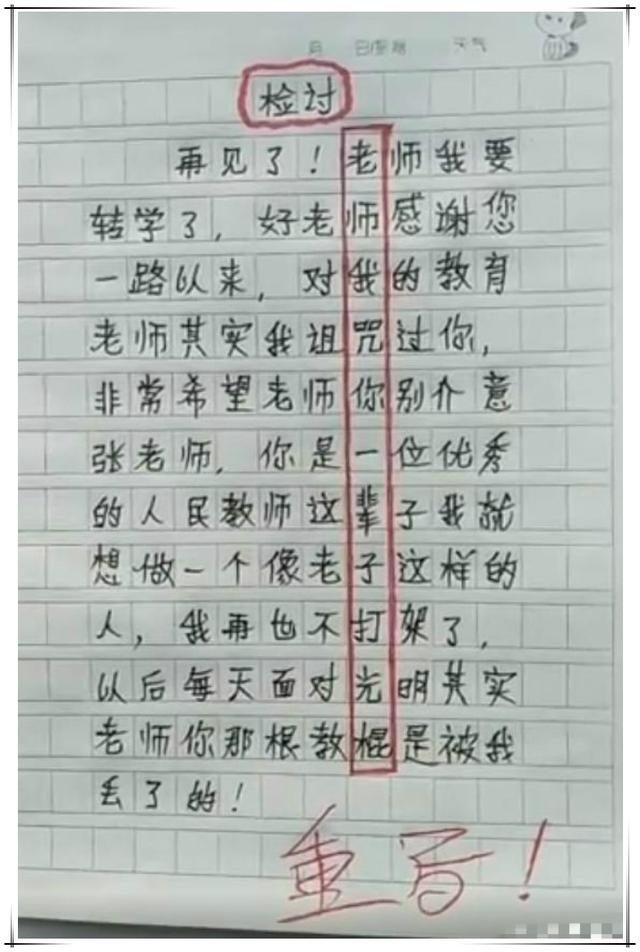 月 日 星期 天气
检讨
再见了！老师我要
转学了，好老师感谢您
一路以来，对我的教育
老师其实我诅咒过你，
非常希望老师你别介意
张老师，你是一位优秀
的人民教师这辈子我就
想做一个像老子这样的
人，我再也不打架了，
以后每天面对光明其实
老师你那根教棍是被我
丢了的！
重写！